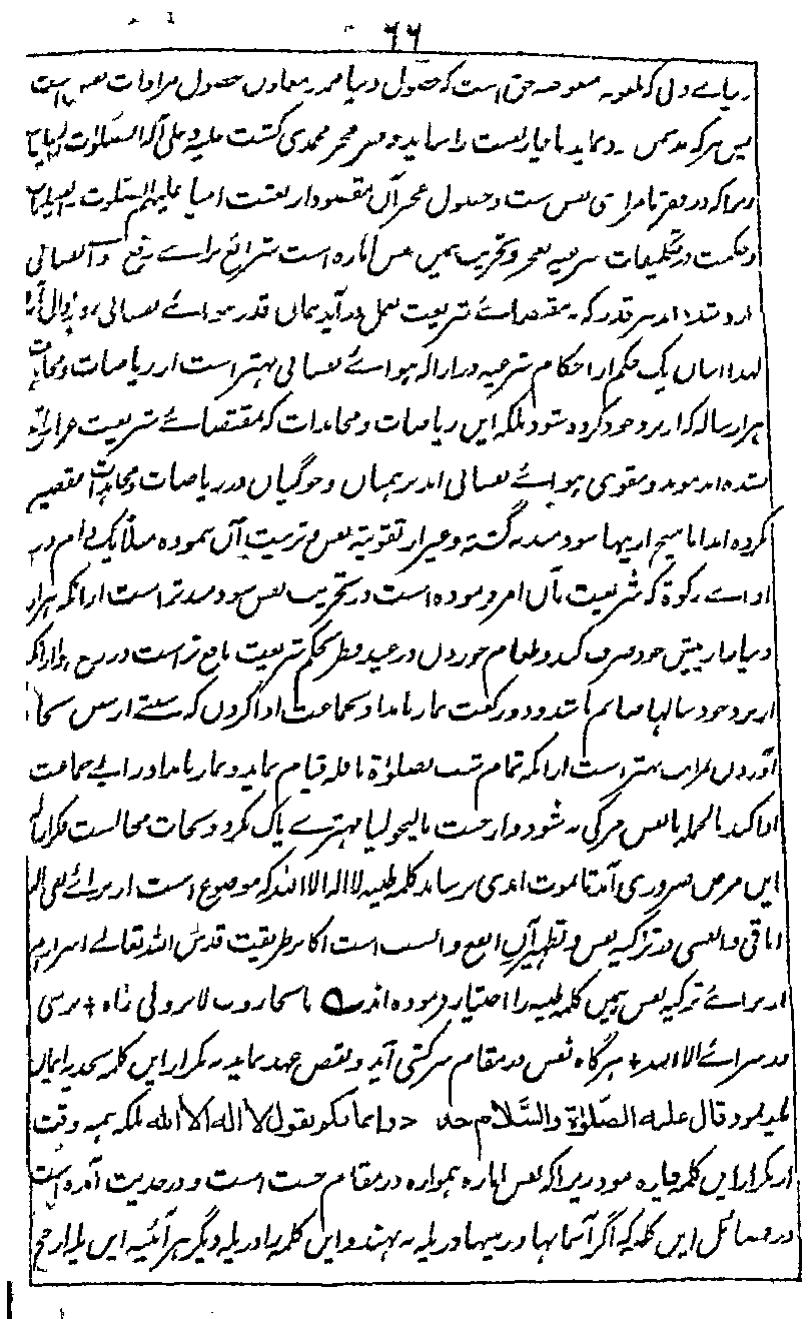 ۶۶
دنیاے دنی کہ ملعونہ مبغوضہ حق است کہ حصول دنیا ممد و معاون حصول مرادات نفس است
پس ہر کہ
زیرا کہ در فقر نامرادی نفس ست و حصول عجز آں مقصود از بعثت انبیا علیہم الصلوت والتسلیمات
و حکمت در تکلیفات شرعیہ تعجیز و تخریب ہمیں نفس امارہ است شرائع براے رفع ہواے نفسانی
وارد شدہ اند ہر قدر کہ بمقتضاے شریعت عمل در آید ہماں قدر ہوائے نفسانی رو بزوال آرد
لہذا اتیان یک حکم از احکام شرعیہ در ازالہ ہوائے نفسانی بہتر است از ریاضات و مجاہدات
ہزار سالہ کہ از نزد خود کردہ شود بلکہ ایں ریاضات و مجاہدات کہ بمقتضائے شریعت غرا واقع
نشدہ اند موید و مقوی ہوائے نفسانی اند برہمناں و جوگیاں در ریاضات و مجاہدات تقصیر
نکردہ اند اما ہیچ ازینہا سودمند نگشتہ و غیر از تقویت نفس و تربیت آں ننمودہ مثلاً یک دام در
اداے زکوۃ کہ شریعت بآں امر فرمودہ است در تخریب نفس سودمند تر است از انکہ ہزار
دینار از پیش خود صرف کند و طعام خوردن در عید فطر بحکم شریعت نافع تر است در رفع ہوا از انکہ
از نزد خود سالہا صائم باشد و دو رکعت نماز بامداد بجماعت ادا کردن کہ سنتے از سنن بجا
آوردن بمراتب بہتر است از انکہ تمام شب بصلوٰۃ نافلہ قیام نماید و نماز بامداد را بے جماعت
ادا کند بالجملہ تا نفس مزکی نہ شود و از خبث مالیخولیا مہتری پاک نگردد نجات محالست فکر ازالہ
ایں مرض ضروری آمد تا بموت ابدی نرساند کلمہ طیبہ لا الہ الا اللہ کہ موضوع است از برائے نفی الٰہ
آفاقی و انفسی در تزکیہ نفس و تطہیر آں انفع و انسب است اکابر طریقت قدس اللہ تعالے اسرارہم
از براے تزکیہ نفس ہمیں کلمہ طیبہ را اختیار فرمودہ اند ؎ تا بجاروب لا نروبی راہ + نرسی
در سرائے الا اللہ + ہرگاہ نفس در مقام سرکشی آید و نقض عہد نماید بہ تکرار ایں کلمہ تجدید ایمان
باید نمود قال علیہ الصلوٰۃ والسلام جددوا ایمانکم بقول لا الہ الا اللہ بلکہ ہمہ وقت
از تکرار ایں کلمہ چارہ نبود زیرا کہ نفس امارہ ہموارہ در مقام خبث است و در حدیث آمدہ است
در فضائل ایں کلمہ کہ اگر آسمانہا و زمینہا در پلہ بہ نہند و ایں کلمہ را در پلہ دیگر ہر آئینہ ایں پلہ راجح